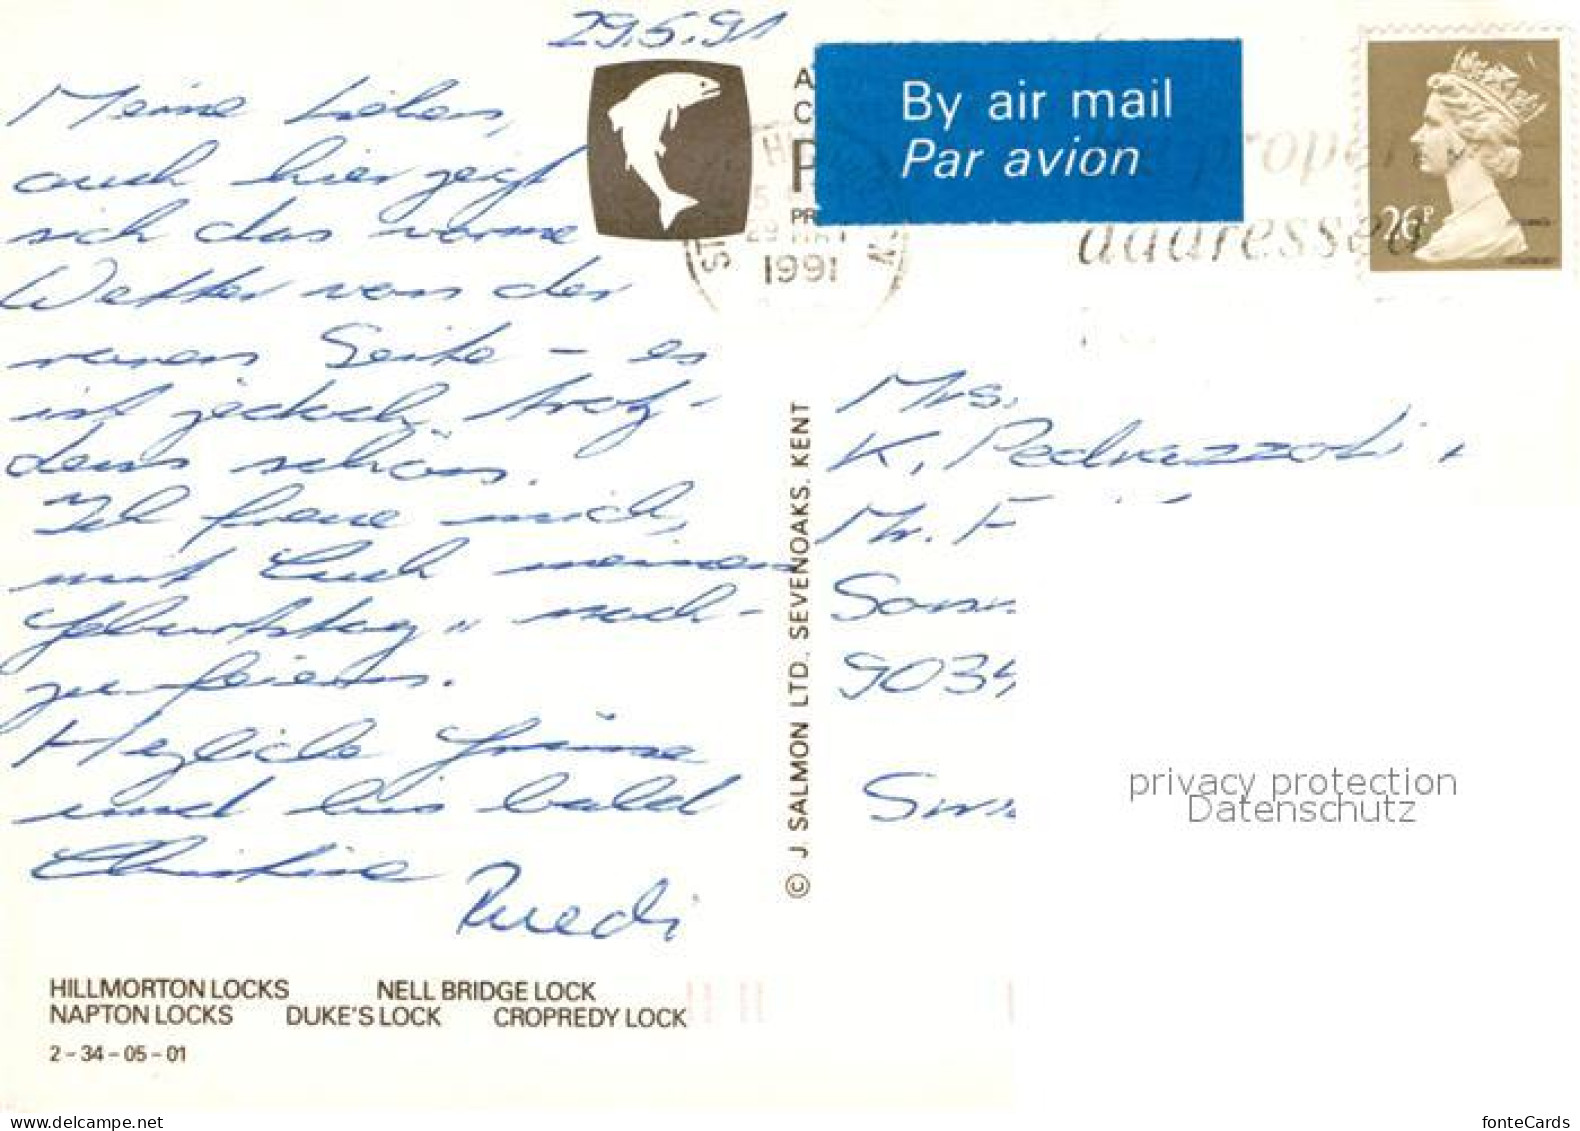 29.5.91
Meine Lieben,
auch hier zeigt
sich das warme
Wetter von der
rauen Seite - es
ist jedoch trotz-
dem schön.
Ich freue mich,
mit Euch meinen
Geburtstag " nach-
zufeiern.
Herzliche Grüsse
und bis bald
Christine
Ruedi
HILLMORTON LOCKS NELL BRIDGE LOCK
NAPTON LOCKS DUKE'S LOCK CROPREDY LOCK
2-34-05-01
© J. SALMON LTD., SEVENOAKS, KENT
A
C
P
PR
1991
By air mail
Par avion
proper
addressed
26P
Mrs.
K. Pedrazzoli
Mr. F
Sonn
9034
Swi
privacy protection
Datenschutz
fonteCards